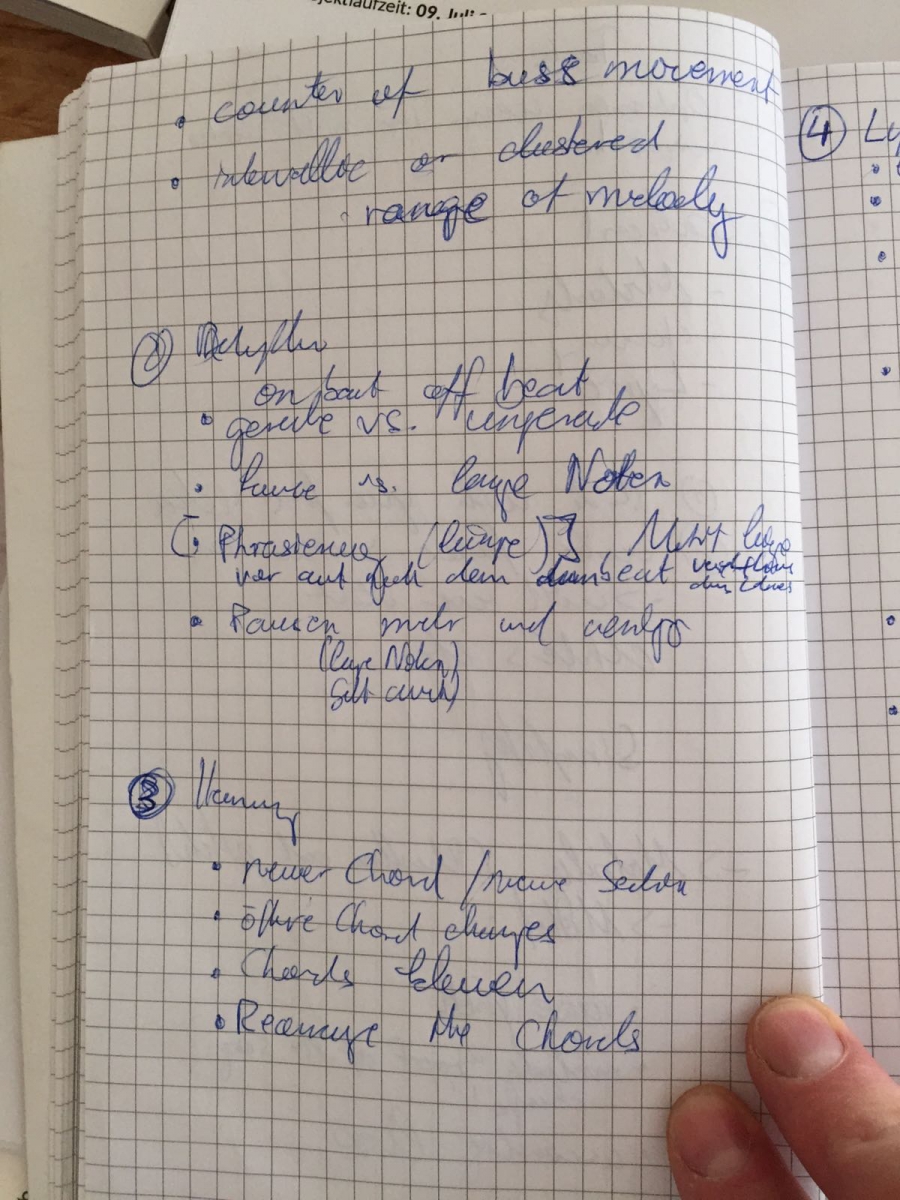 ojektlaufzeit: 09. Juli
• counter of bass movement
• intervallic or clustered
range of melody
② Rhythm
on beat off beat
• gerade vs. ungerade
• kurze vs. lange Noten
(• Phrasierung (länge)]
vor auf nach dem downbeat
• Pausen mehr und weniger
(lange Noten)
③ Harmony
• neuer Chord / neue Section
• öftere Chord changes
• Chords
• Rearrange the Chords
④ Ly